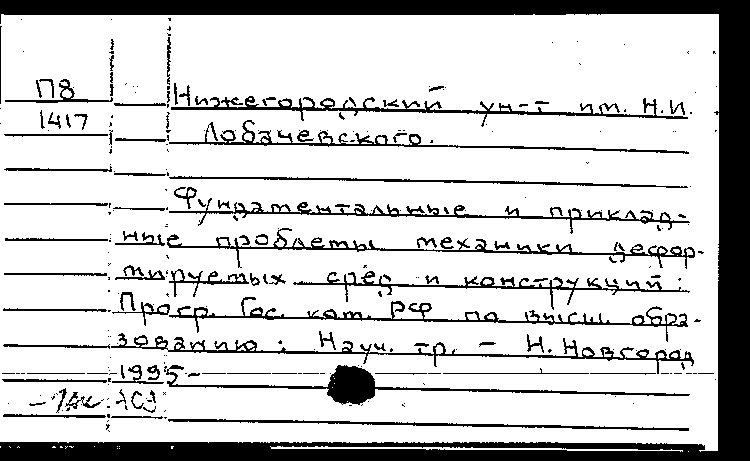 П8
1417
Нижегородский ун-т им. Н.И.
Лобачевского.
Фундаментальные и приклад-
ные проблемы механики дефор-
мируемых сред и конструкций:
Прогр. Гос. ком. РФ по высш. обра-
зованию: Науч. тр. - Н. Новгород
1995-